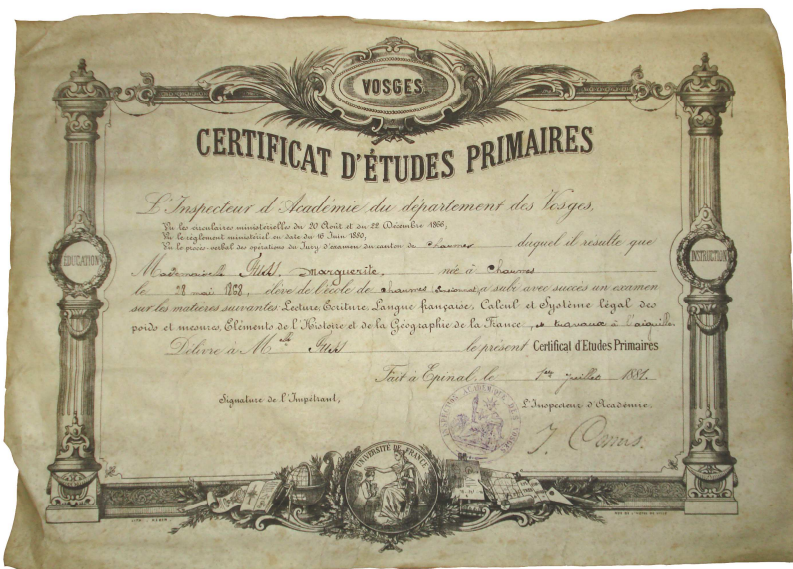 VOSGES
CERTIFICAT D'ÉTUDES PRIMAIRES
L'Inspecteur d'Académie du département des Vosges,
Vu les circulaires ministérielles du 20 Août et du 22 Décembre 1866,
Vu le règlement ministériel en date du 16 Juin 1880,
Vu le procès-verbal des opérations du Jury d'examen du canton de Charmes duquel il résulte que
Mademoiselle Marguerite, née à Charmes
le 28 mai 1868, élève de l'école de Charmes a subi avec succès un examen
sur les matières suivantes Lecture, Ecriture, Langue française, Calcul et Système légal des
poids et mesures, Eléments de l'Histoire et de la Géographie de la France, et travaux à l'aiguille.
Délivré à Melle le présent Certificat d'Etudes Primaires
Fait à Epinal, le 1er Juillet 1881.
Signature de l'Impétrant, L'Inspecteur d'Académie.
EDUCATION
INSTRUCTION
UNIVERSITÉ DE FRANCE